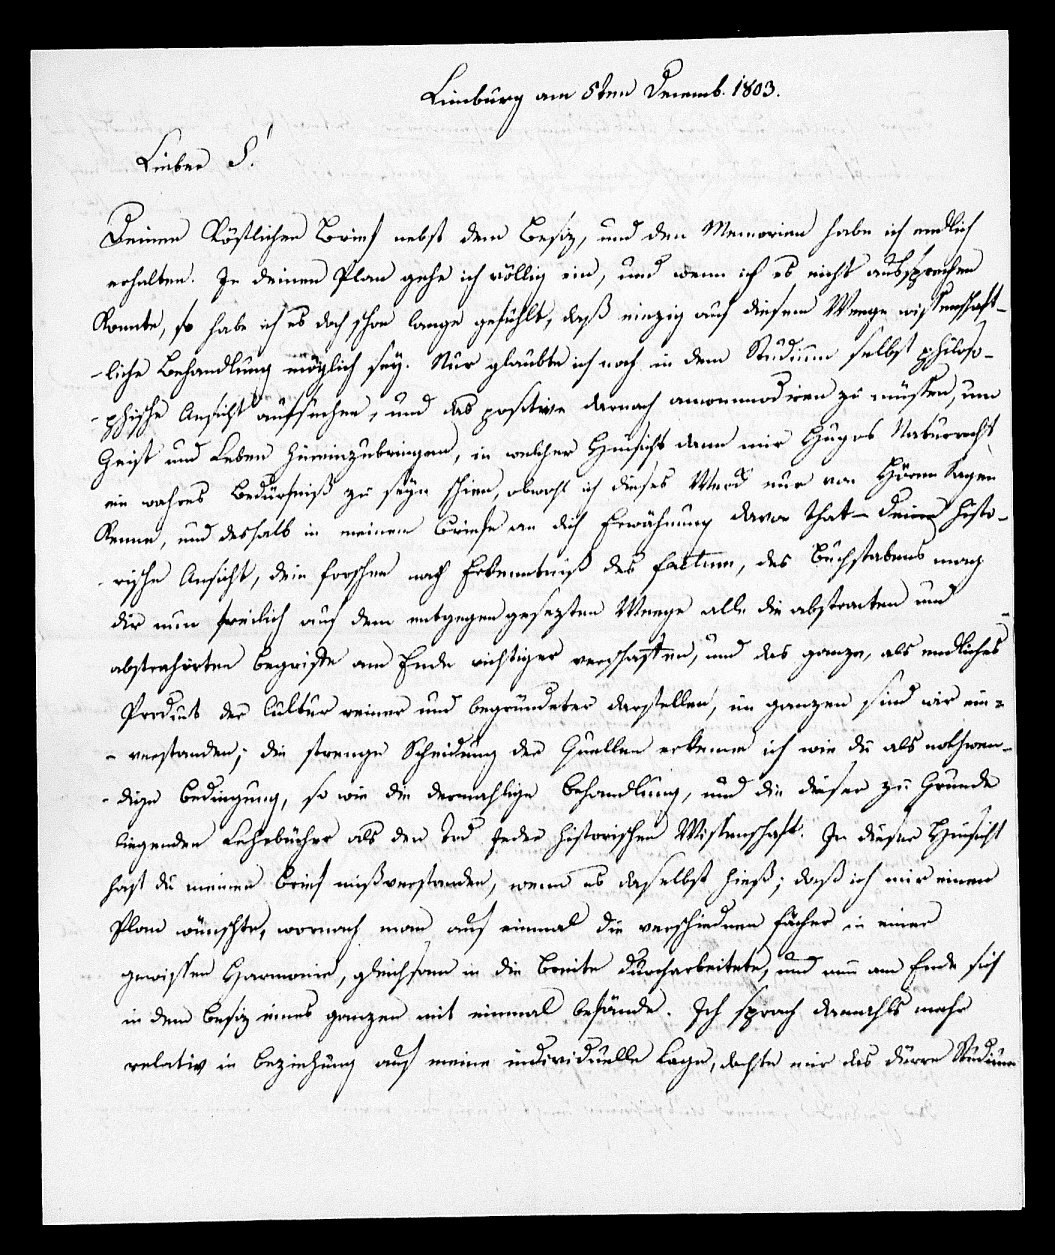 Limburg am 5ten Decemb. 1803.
Lieber S!
Deinen köstlichen Brief nebst dem Besiz, und den Memorien habe ich endlich
erhalten. In deinen Plan gehe ich völlig ein, und wenn ich es nicht aussprechen
konnte, so habe ich es doch schon lange gefühlt, daß einzig auf diesem Weege wissenschaft-
-liche Behandlung möglich sey. Nur glaubte ich noch in dem Studium selbst philoso-
-phische Ansicht aufsuchen, und das positive darnach accommodiren zu müssen, um
Geist und Leben hineinzubringen, in welcher Hinsicht dann mir Hugos Naturrecht
ein wahres Bedürfniß zu seyn schien, obwohl ich dieses Werck nur von Hören sagen
kenne, und desshalb in meinem Briefe an dich Erwähnung davon that – Deine histo-
rische Ansicht, dein forschen nach Erkenntniß des factum, des Buchstabens mag
dir nun freilich auf dem entgegen gesezten Weege alle die abstracten und
abstrahirten begriffe am Ende richtiger verschaffen, und das ganze, als endliches
Produkt der Cultur reiner und begründeter darstellen, im ganzen sind wir ein-
- verstanden; die strenge Scheidung der Quellen erkenne ich wie du als nothwen-
- dige bedingung, so wie die dermahlige behandlung, und die dieser zu Grunde
liegenden Lehrbücher als den Tod jeder historischen Wissenschaft. In dieser Hinsicht
hast du meinen brief mißverstanden, wenn es daselbst hieß; daß ich mir einen
Plan wünschte, wornach man auf einmal die verschiednen fächer in einer
gewissen Harmonie, gleichsam in die Breite durcharbeitete, und nun am Ende sich
in dem besiz eines ganzen mit einmal befände. Ich sprach damahls mehr
relativ in beziehung auf meine individuelle Lage, dachte mir das dürre Studium